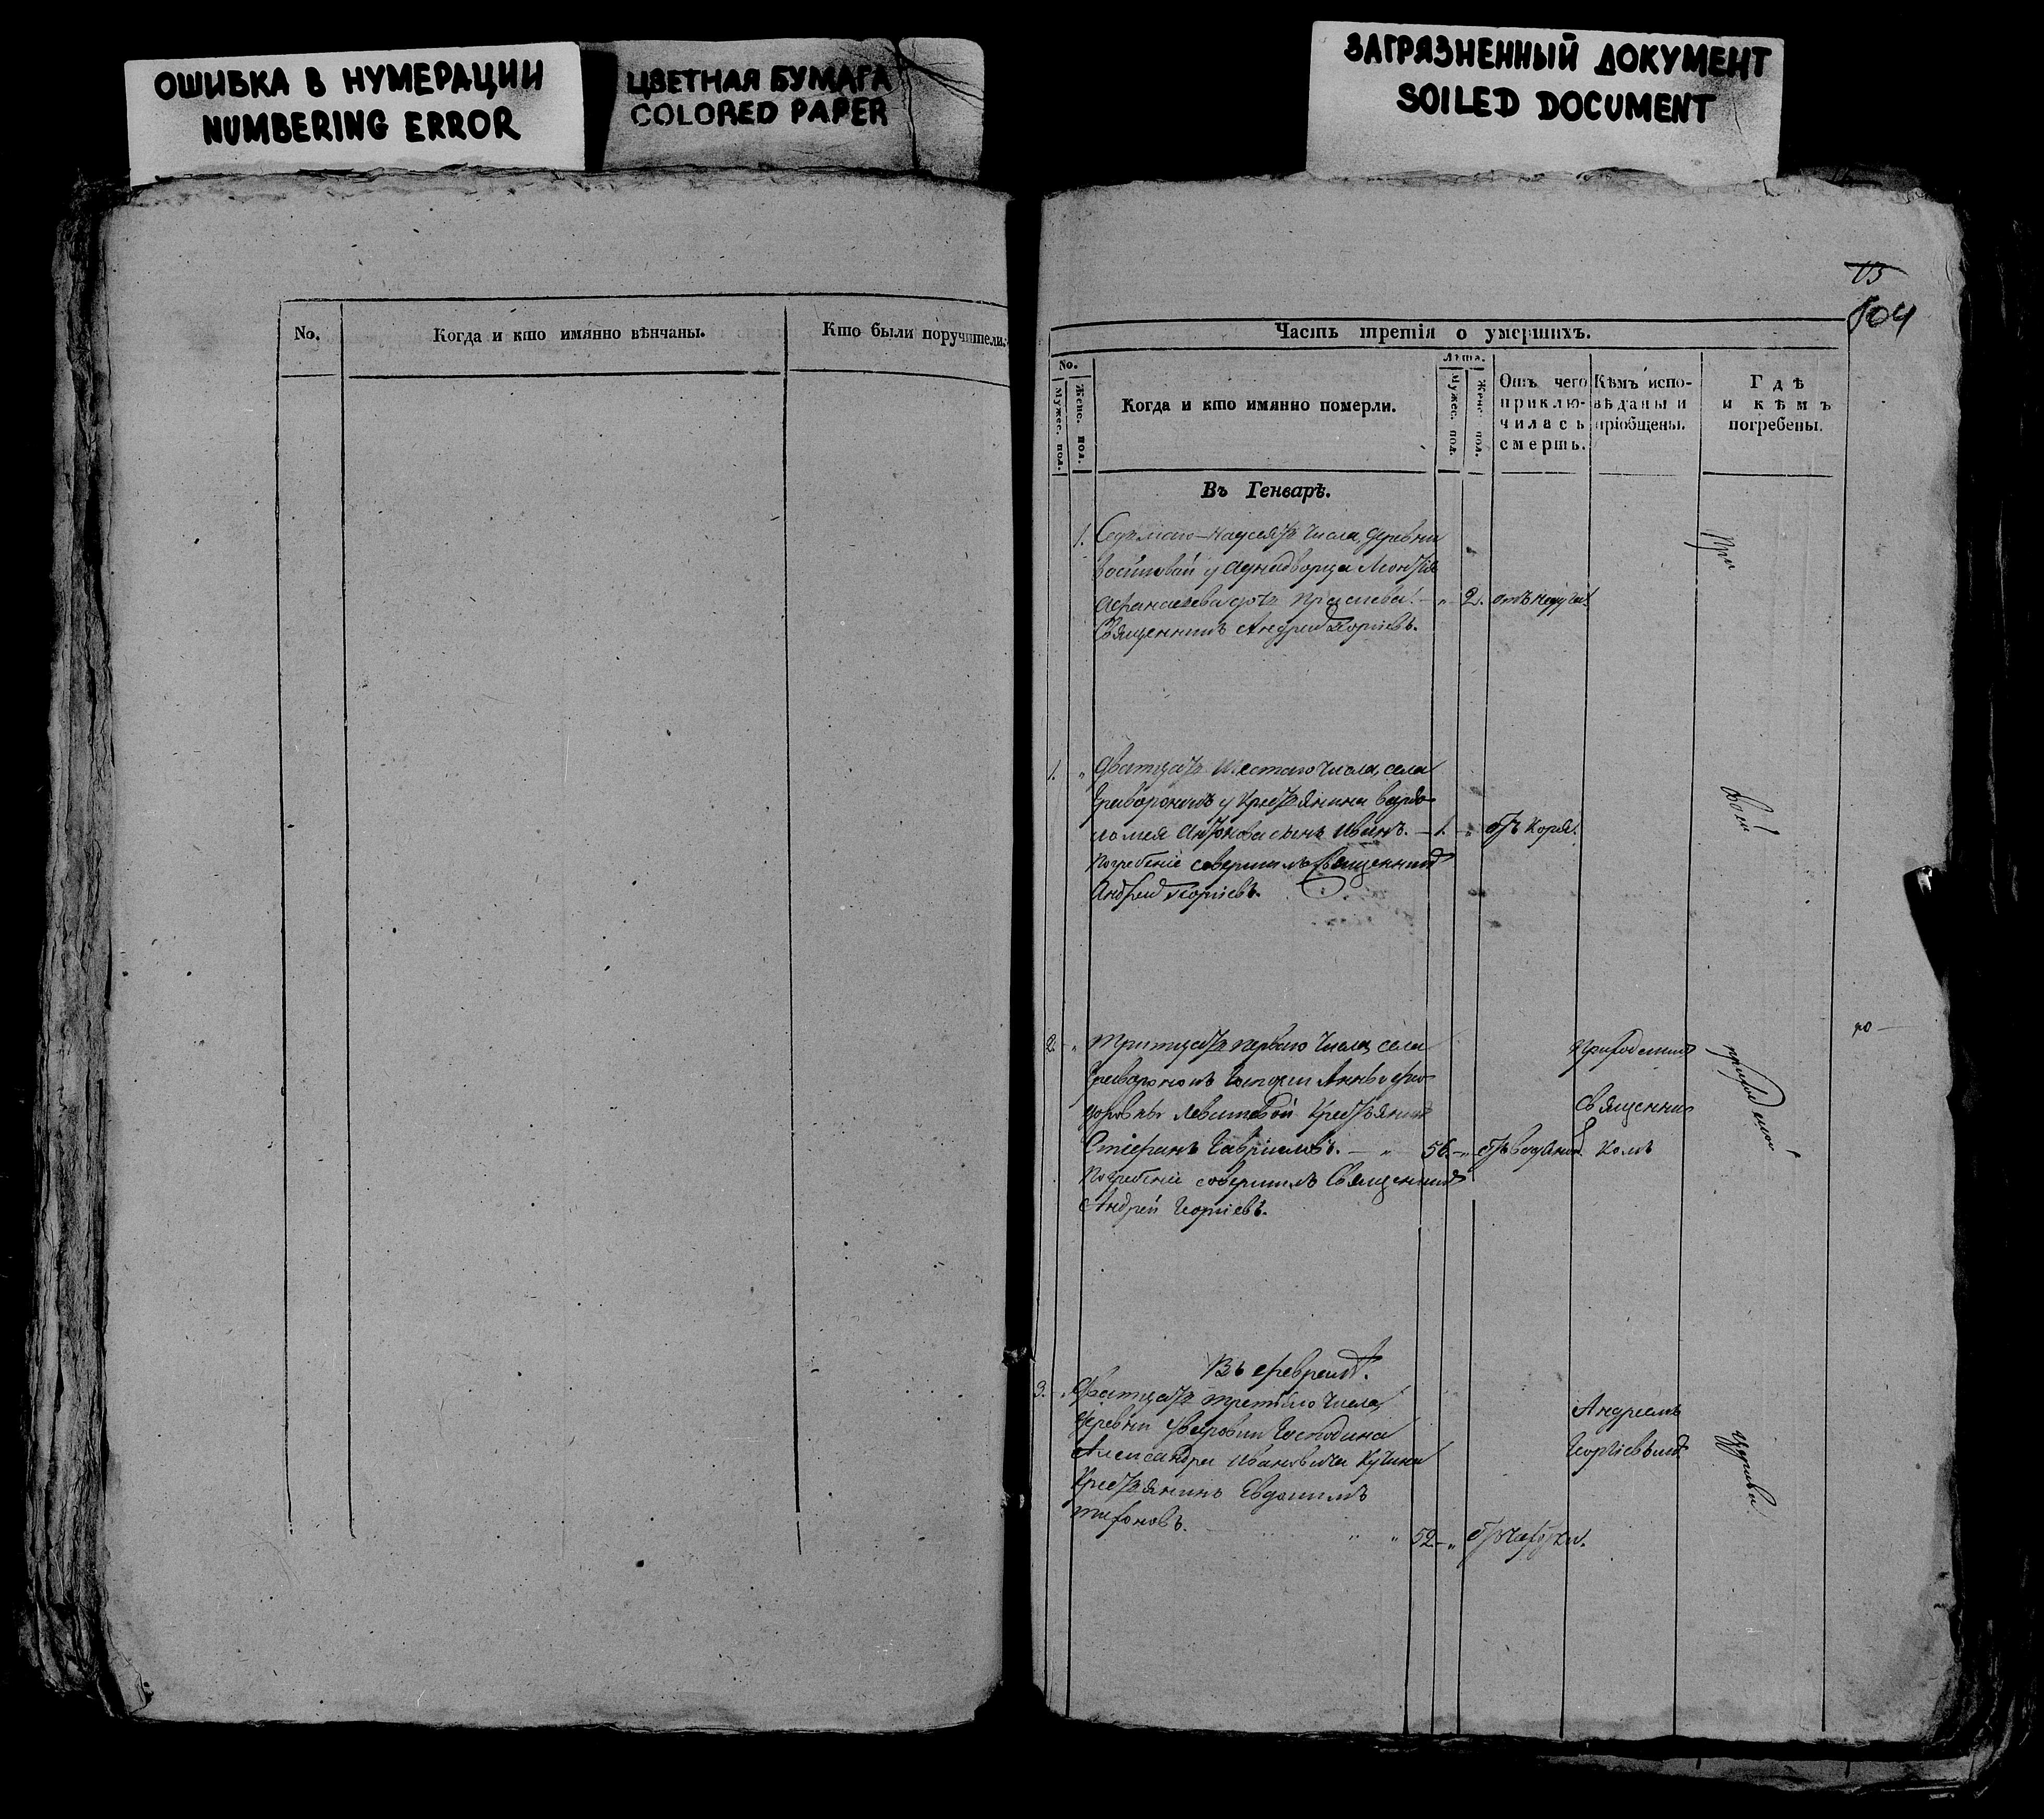 ОШИБКА В НУМЕРАЦИИ
NUMBERING ERROR
ЦВЕТНАЯ БУМАГА
COLORED PAPER
ЗАГРЯЗНЕННЫЙ ДОКУМЕНТ
SOILED DOCUMENT
No.
Когда и кто имянно вѣнчаны.
Кто были поручители.
13
504
Часть третія о умершихъ.
No.
Мужес. пол.
Женс. пол.
Когда и кто имянно померли.
Лѣта.
Мужес. пол.
Женс. пол.
Отъ чего
приклю-
чилась
смерть.
Кѣмъ испо-
вѣданы и
пріобщены.
Гдѣ
и кѣмъ
погребены.
Въ Генварѣ.
1. числа, деревни
у
2.
Священникъ Андрей Георгіевъ.
При
1. " Дватцать шестаго числа, села
у крестьянина Варфо-
ломея сынъ Иванъ. — 1. — " отъ кори.
Погребеніе совершилъ Священникъ
Андрей Георгіевъ.
2. " Тритцать перваго числа, села
Госпожи Анны Фио-
доровны крестьянинъ
Стефанъ Гавриловъ. — " 56. — "
Погребеніе совершилъ Священникъ
Андрей Георгіевъ.
Приходскимъ
Священни
комъ
приходской
Въ Февралѣ.
3. " Дватцать третьяго числа,
деревни Господина
Александра Ивановича
крестьянинъ Евдокимъ
Тихоновъ. " " 52 — " отъ чахотки.
Андреемъ
Георгіевымъ
церкви